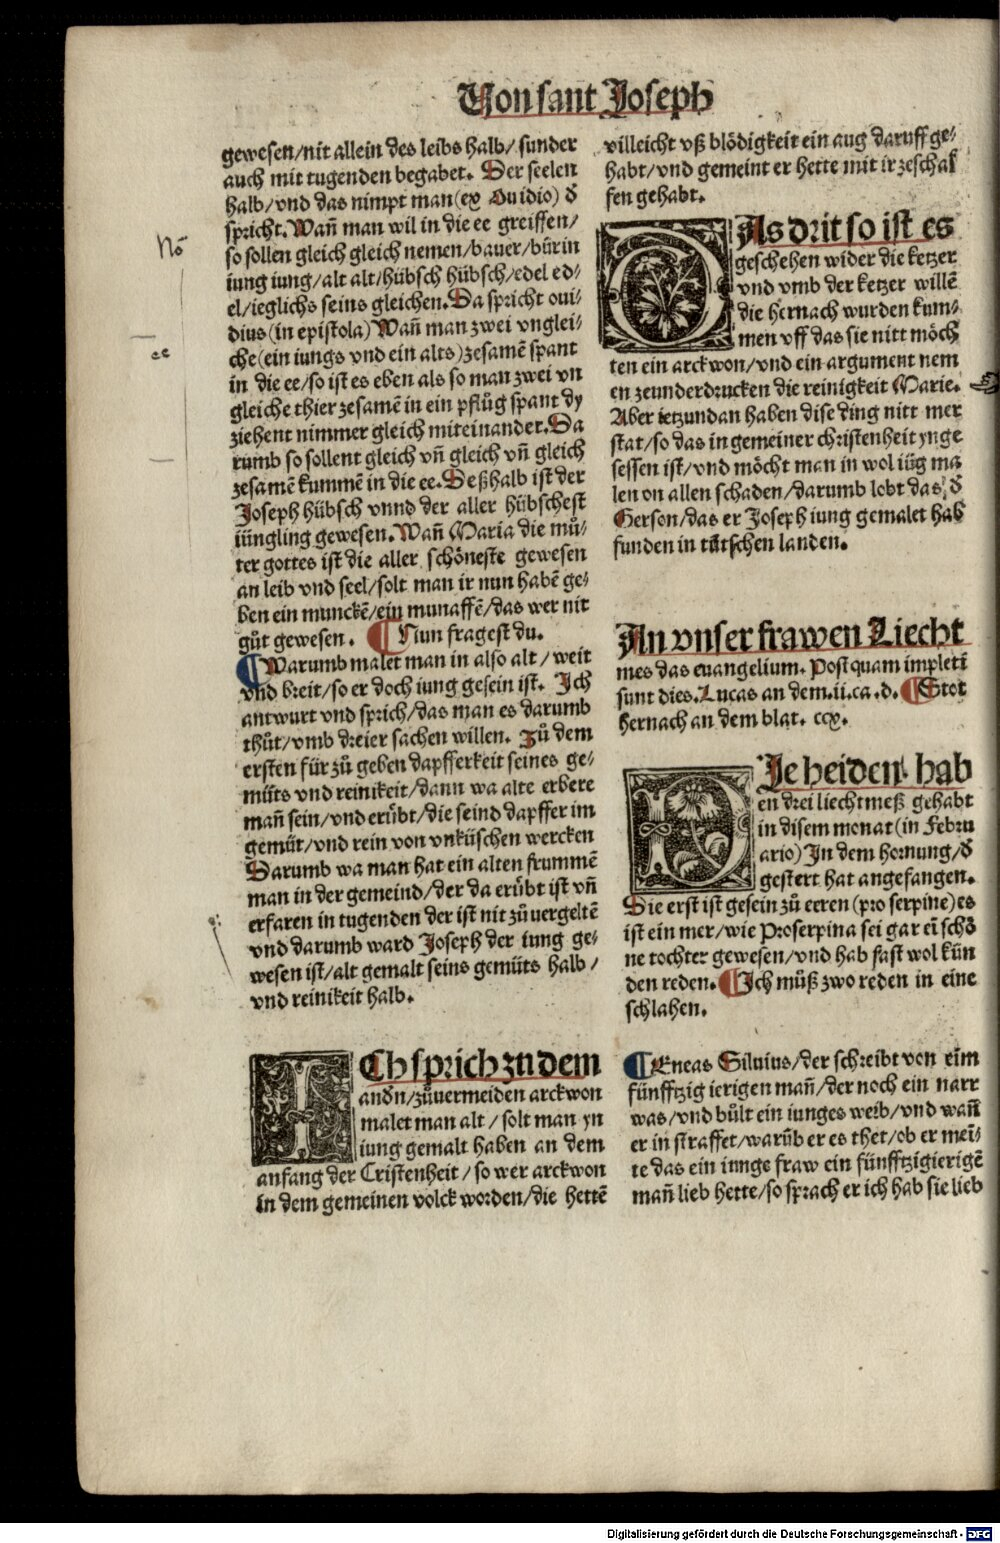 Von sant Joseph
gewesen/nit allein des leibs halb/sunder
auch mit tugenden begabet. Der seelen
halb/vnd das nimpt man(ex Ouidio) d̕
spricht. Wañ man wil in die ee greiffen/
so sollen gleich gleich nemen/bauer/bürin
iung iung/alt alt/hübsch hübsch/edel ed⸗
el/ieglichs seins gleichen. Da spricht oui⸗
dius(in epistola)Wañ man zwei vnglei⸗
che(ein iungs vnd ein alts)zesamē spant
in die ee/so ist es eben als so man zwei vn
gleiche thier zesamē in ein pflůg spant dy
ziehent nimmer gleich miteinander. Da
rumb so sollent gleich vñ gleich vñ gleich
zesamē kummē in die ee. Deßhalb ist der
Joseph hübsch vnnd der aller hübschest
iüngling gewesen. Wañ Maria die mů⸗
ter gottes ist die aller schöneste gewesen
an leib vnd seel/solt man ir nun habē ge⸗
ben ein munckē/ein munaffē/das wer nit
gůt gewesen. ¶ Nun fragest du.
¶ Warumb malet man in also alt/weit
vnd breit/so er doch iung gesein ist. Ich
antwurt vnd sprich/das man es darumb
thůt/vmb dreier sachen willen. Zů dem
ersten für zů geben dapfferkeit seines ge⸗
müts vnd reinikeit/dann wa alte erbere
mañ sein/vnd erübt/die seind dapffer im
gemüt/vnd rein von vnküschen wercken
Darumb wa man hat ein alten frummē
man in der gemeind/der da erübt ist vñ
erfaren in tugenden der ist nit zů vergeltē
vnd darumb ward Joseph der iung ge⸗
wesen ist/alt gemalt seins gemüts halb/
vnd reinikeit halb.
ICh sprich zu dem
andn̕/zůuermeiden arckwon
malet man alt/solt man yn
iung gemalt haben an dem
anfang der Cristenheit/so wer arckwon
in dem gemeinen volck worden/die hettē
villeicht vß blödigkeit ein aug daruff ge⸗
habt/vnd gemeint er hette mit ir zeschaf
fen gehabt.
DAs drit so ist es
geschehen wider die ketzer
vnd vmb der ketzer willē
die hernach wurden kum⸗
men vff das sie nitt möch
ten ein arckwon/vnd ein argument nem
en zeunderdrucken die reinigkeit Marie.
Aber ietzundan haben dise ding nitt mer
stat/so das in gemeiner christenheit ynge
sessen ist/vnd möcht man in wol iüg ma
len on allen schaden/darumb lobt das d̕
Gerson/das er Joseph iung gemalet hab
funden in tütschen landen.
An vnser frawen Liecht
mes das euangelium. Postquam impleti
sunt dies. Lucas an dem .ii. ca .d. ¶ Stot
hernach an dem blat. ccx.
DIe heiden hab
en drei liechtmeß gehabt
in disem monat(in Febru
ario)In dem hornung/d̕
gestert hat angefangen.
Die erst ist gesein zů eeren(proserpine)es
ist ein mer/wie Proserpina sei gar ei̅ schö
ne tochter gewesen/vnd hab fast wol kün
den reden. ¶ Ich můß zwo reden in eine
schlahen.
¶ Eneas Siluius/der schreibt von ei̅m
fünfftzig ierigen mañ/der noch ein narr
was/vnd bůlt ein iunges weib/vnd wañ
er in straffet/warüb er es thet/ob er mei̅⸗
te das ein iunge fraw ein fünfftzigierigē
mañ lieb hette/so sprach er ich hab sie lieb
Nō
ee
Digitalisierung gefördert durch die Deutsche Forschungsgemeinschaft - DFG